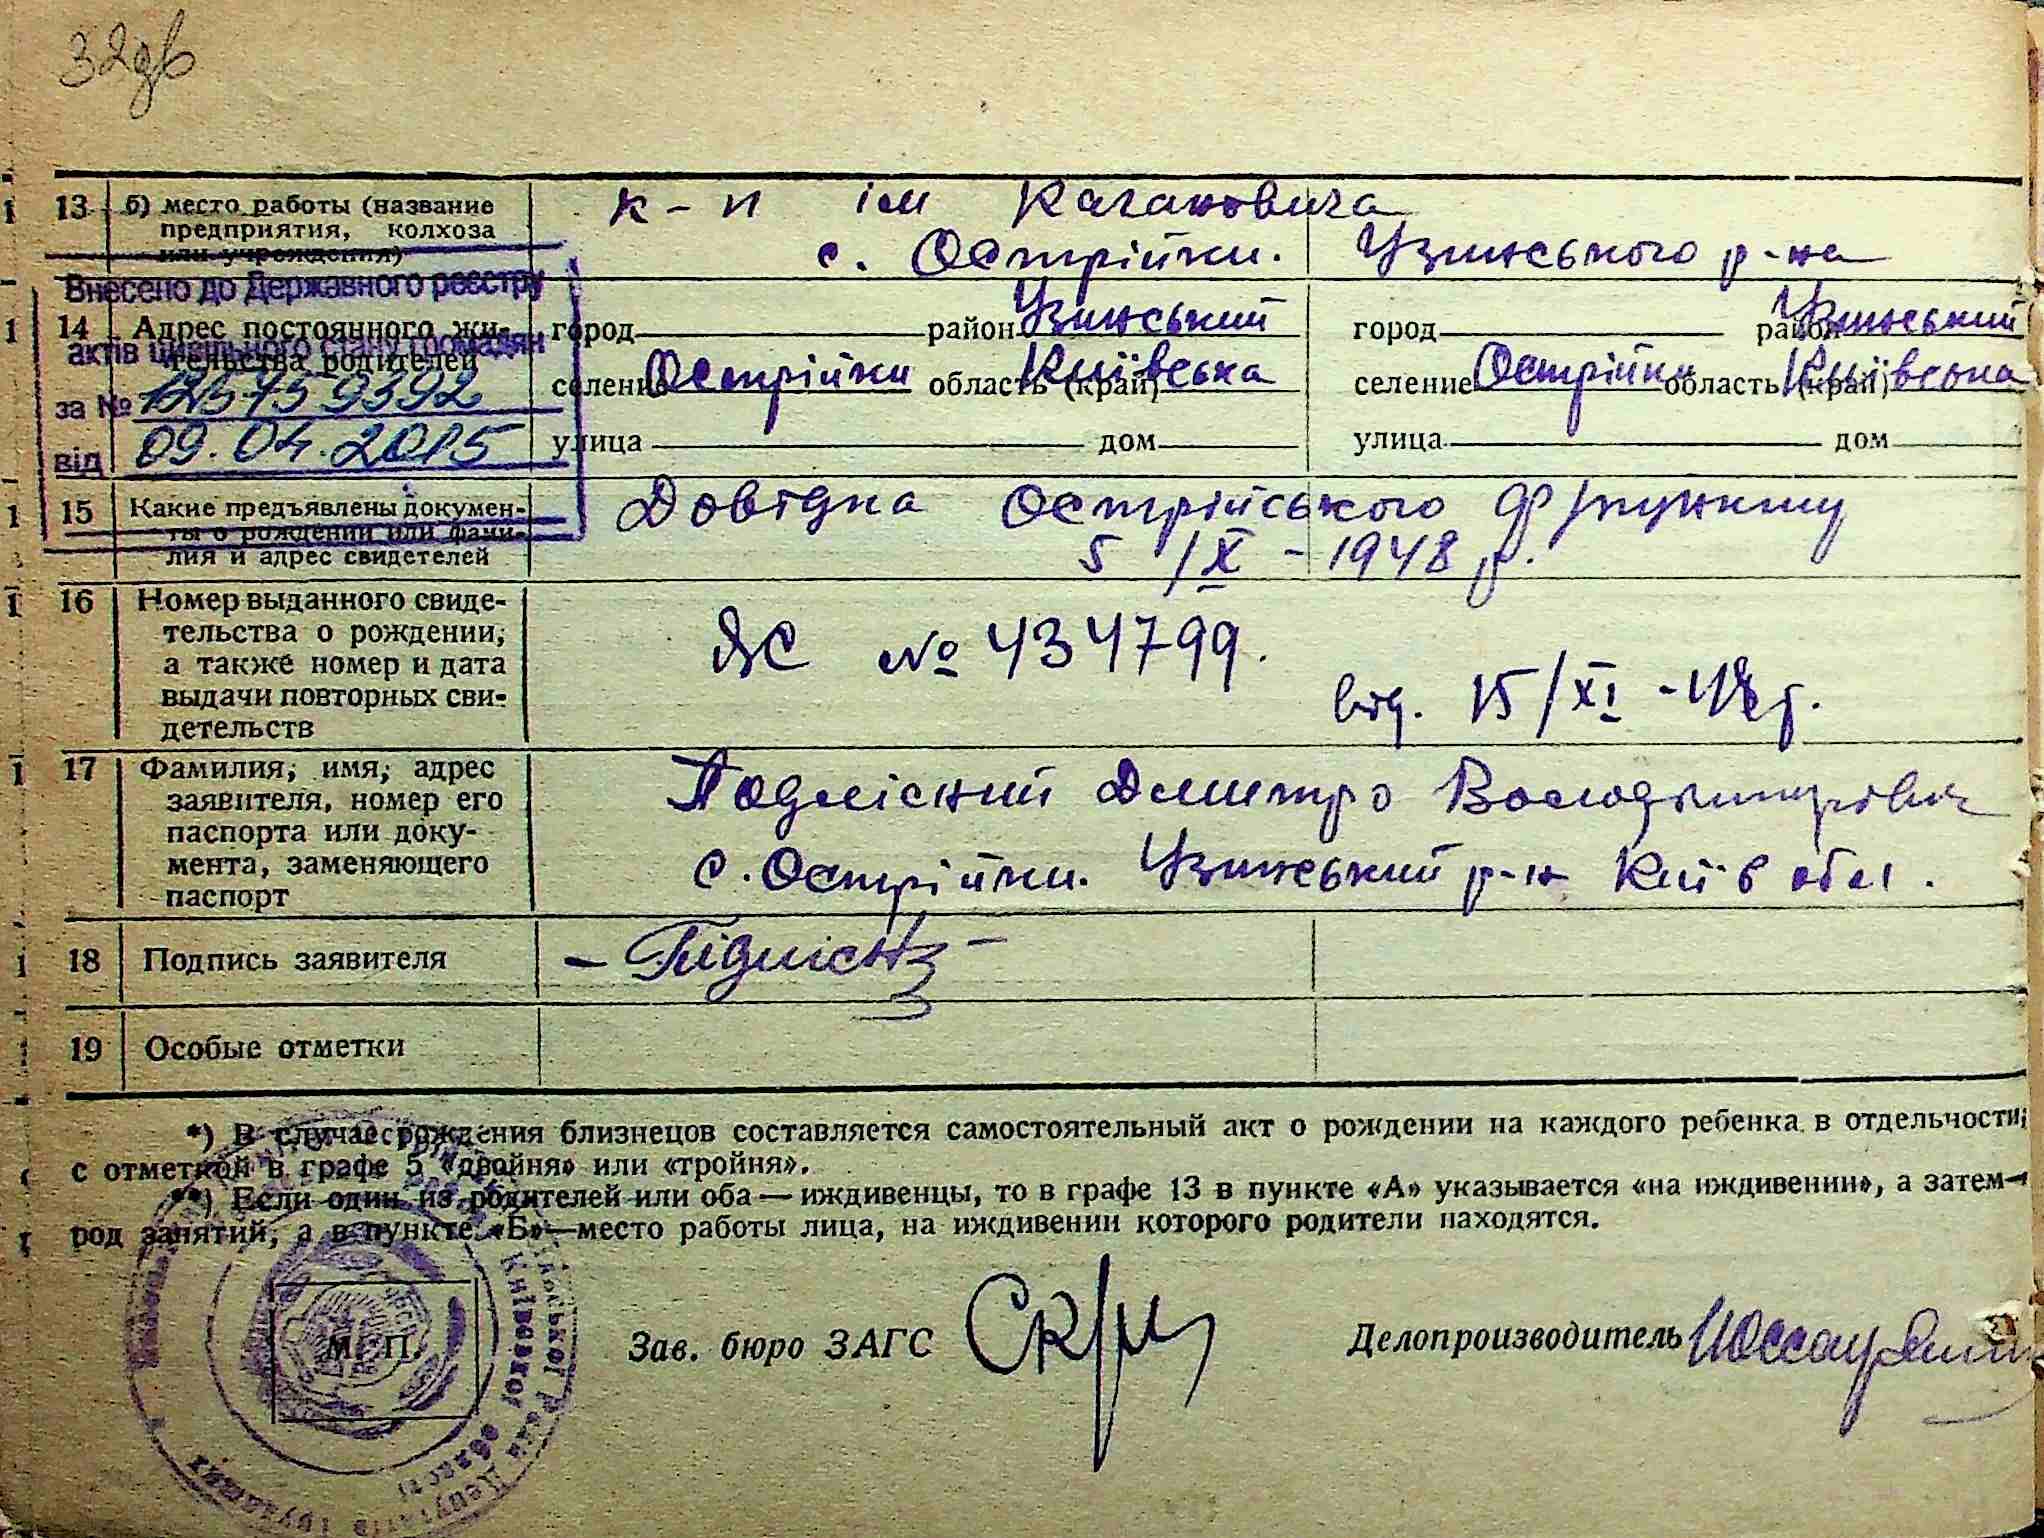 32зв
13 б) место работы (название
предприятия, колхоза
или учреждения)
к-п ім Кагановича
с. Острійки. Узинського р-на
Внесено до Державного реєстру
актів цивільного стану громадян
за №
від 09.04.2015
14 Адрес постоянного жи-
тельства родителей
город район Узинський
селение Острійки область (край) Київська
улица дом
город район Узинський
селение Острійки область (край) Київська
улица дом
15 Какие предъявлены докумен-
ты о рождении или фами-
лия и адрес свидетелей
Довідка Острійського
5/X - 1948 р.
16 Номер выданного свиде-
тельства о рождении,
а также номер и дата
выдачи повторных сви-
детельств
ЯС № 434799.
від. 15/XI - 48 г.
17 Фамилия, имя, адрес
заявителя, номер его
паспорта или доку-
мента, заменяющего
паспорт
Підлісний Дмитро Володимирович
с. Острійки. Узинський р-н Київ обл.
18 Подпись заявителя
- Підлісн -
19 Особые отметки
*) В случае рождения близнецов составляется самостоятельный акт о рождении на каждого ребенка в отдельности,
с отметкой в графе 5 «двойня» или «тройня».
**) Если один из родителей или оба — иждивенцы, то в графе 13 в пункте «А» указывается «на иждивении», а затем—
род занятий, а в пункте «Б»—место работы лица, на иждивении которого родители находятся.
М. П.
Київської області
Депутатів Трудящих
Зав. бюро ЗАГС
Делопроизводитель